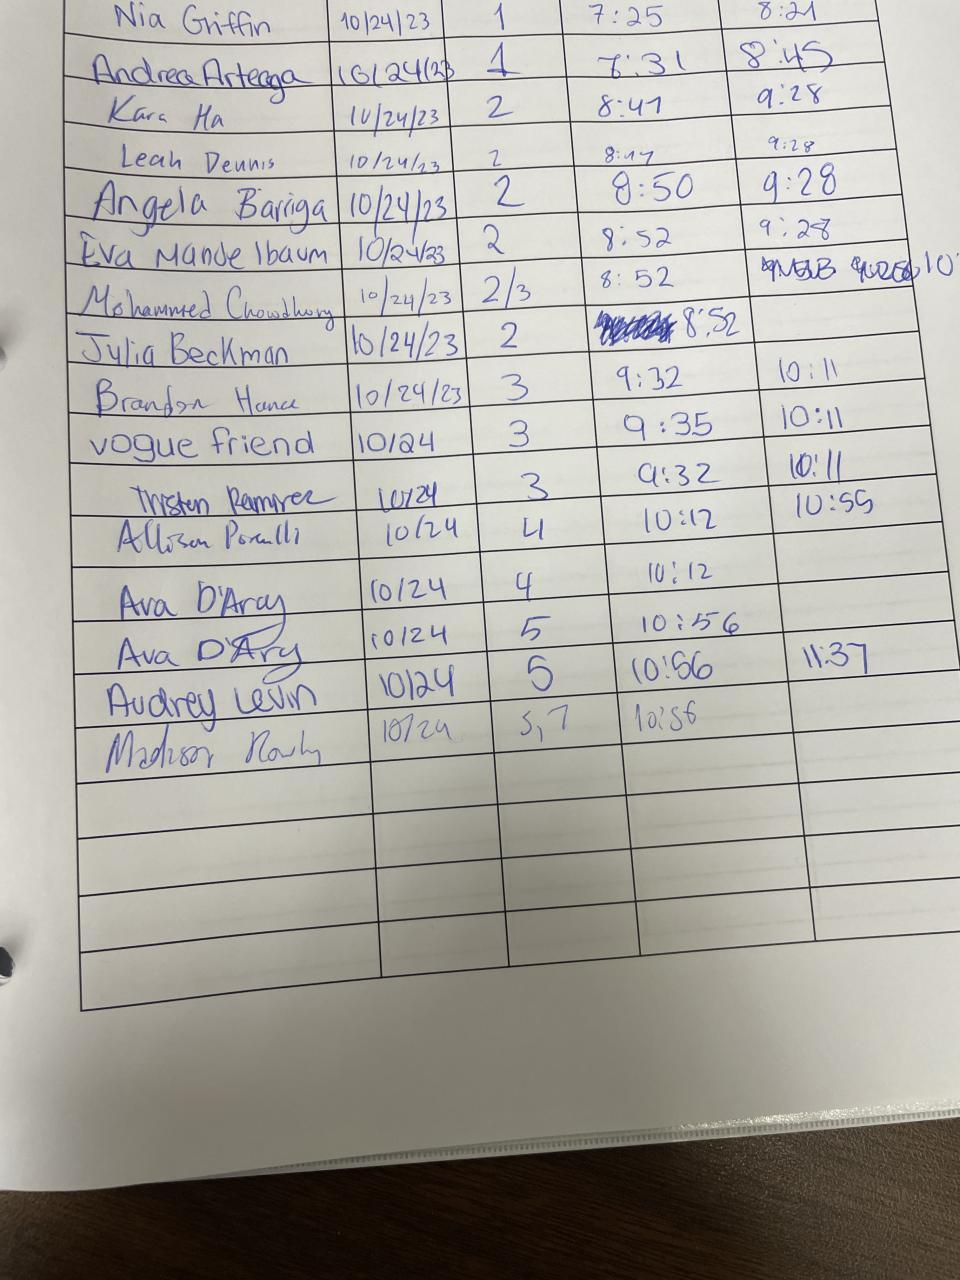 Nia Griffin 10/24/23 1 7:25 8:21
Andrea Arteaga 10/24/23 1 7:31 8:45
Kara Ha 10/24/23 2 8:47 9:28
Leah Dennis 10/24/23 2 8:47 9:28
Angela Barriga 10/24/23 2 8:50 9:28
Eva Mandelbaum 10/24/23 2 8:52 9:28
Mohammed Chowdhury 10/24/23 2/3 8:52
Julia Beckman 10/24/23 2 8:52
Brandon Hance 10/24/23 3 9:32 10:11
vogue friend 10/24 3 9:35 10:11
Tristen Ramirez 10/24 3 9:32 10:11
Allison 10/24 4 10:12 10:55
Ava D'Arcy 10/24 4 10:12
Ava D'Arcy 10/24 5 10:56
Audrey Levin 10/24 5 10:56 11:37
Madison 10/24 5,7 10:56